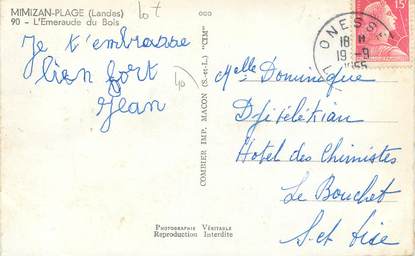 MIMIZAN-PLAGE (Landes)
90 - L'Emeraude du Bois
Je t'embrasse
bien fort
Jean
COMBIER IMP. MACON (S.-et-L.) "CIM"
PHOTOGRAPHIE VÉRITABLE
Reproduction Interdite
ONESSE
18 H
19 - 9
15
Melle Dominique
Djitélékian
Hotel des Chimistes
Le Bouchet
S. et Oise